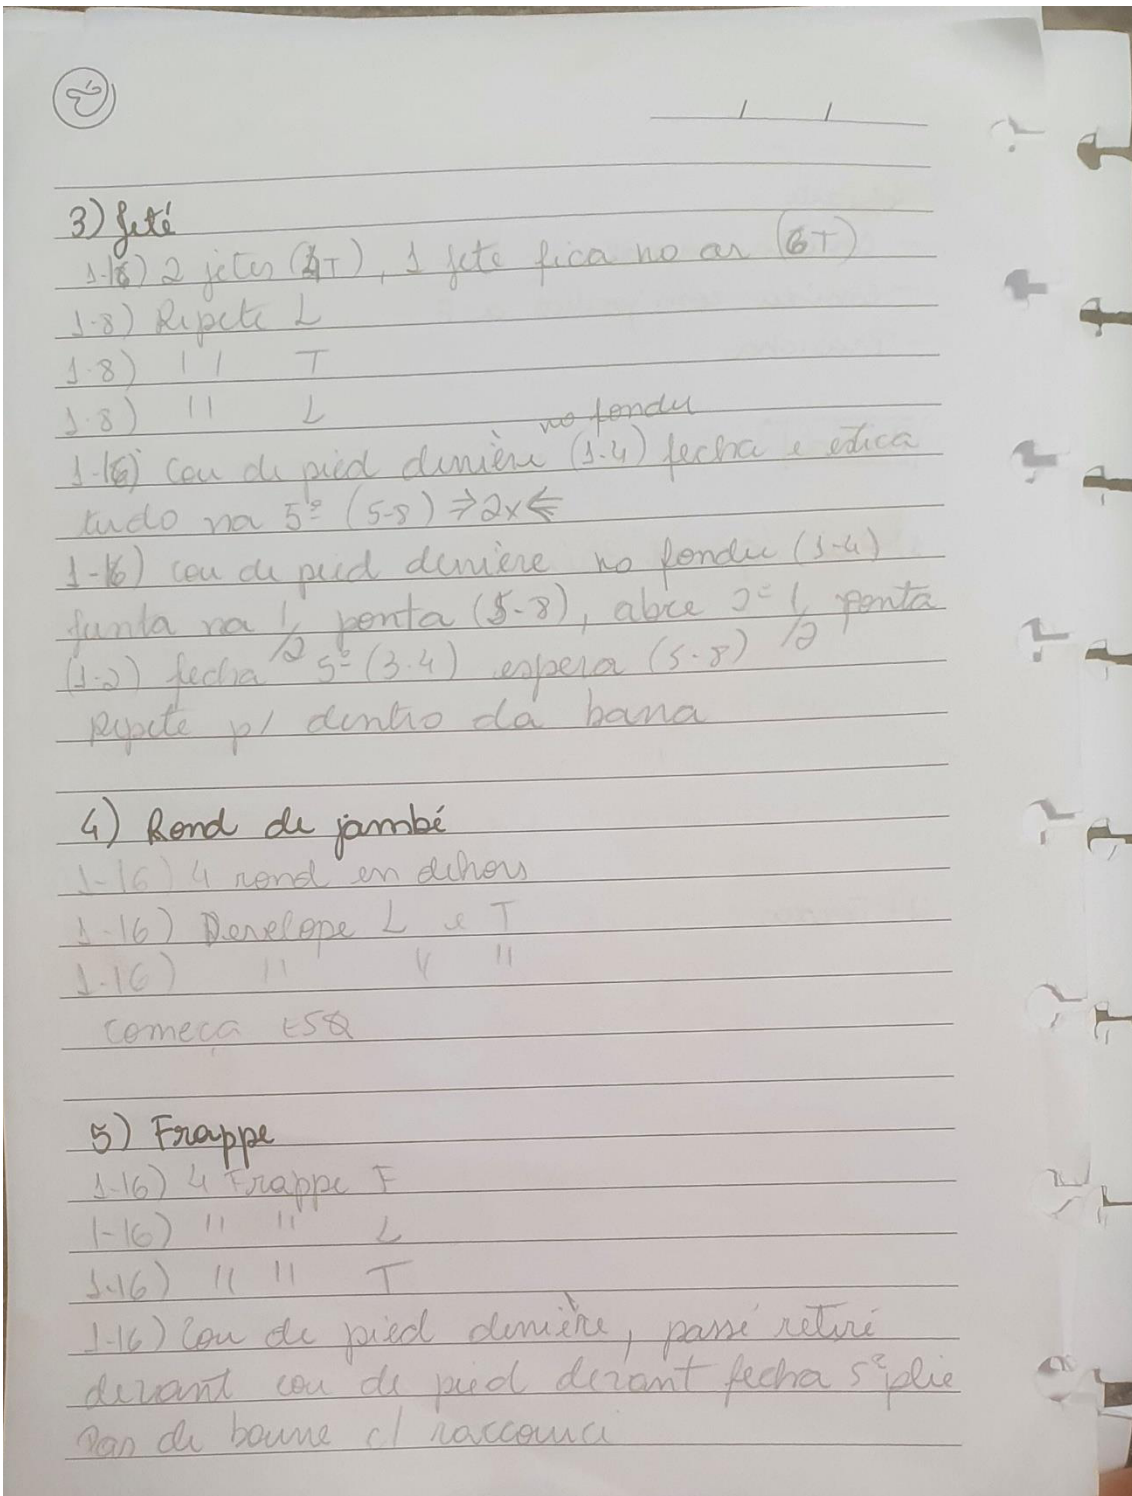 / /
3) Jeté
1-16) 2 jetes (4T), 1 jete fica no ar (6T)
1-8) Repete L
1-8) " T
1-8) " L
no fondu
1-16) Cou de pied derrière (1-4) fecha e estica
tudo na 5ª (5-8) ⇒2x⇐
1-16) cou de pied derrière no fondu (1-4)
junta na 1/2 ponta (5-8), abre 2ª 1/2 ponta
(1-2) fecha 5ª (3-4) espera (5-8)
Repete p/ dentro da barra
4) Rond de jambé
1-16) 4 rond en dehors
1-16) Develope L e T
1-16) " " "
começa ESQ
5) Frappe
1-16) 4 Frappe F
1-16) " " L
1-16) " " T
1-16) Cou de pied derrière, passé retiré
devant cou de pied devant fecha 5ª plie
Pas de bourre c/ raccourci